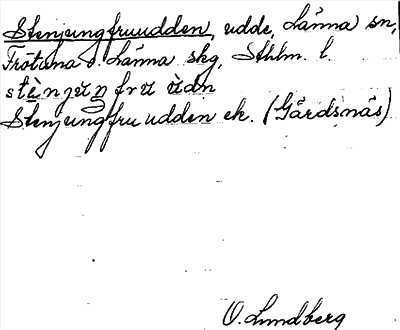 Stenjungfruudden, udde, Länna sn,
Frötuna o. Länna skg, Sthlm. l.
stènjuŋfru ùdn
Stenjungfruudden ek. (Gårdsnäs)
O. Lundberg